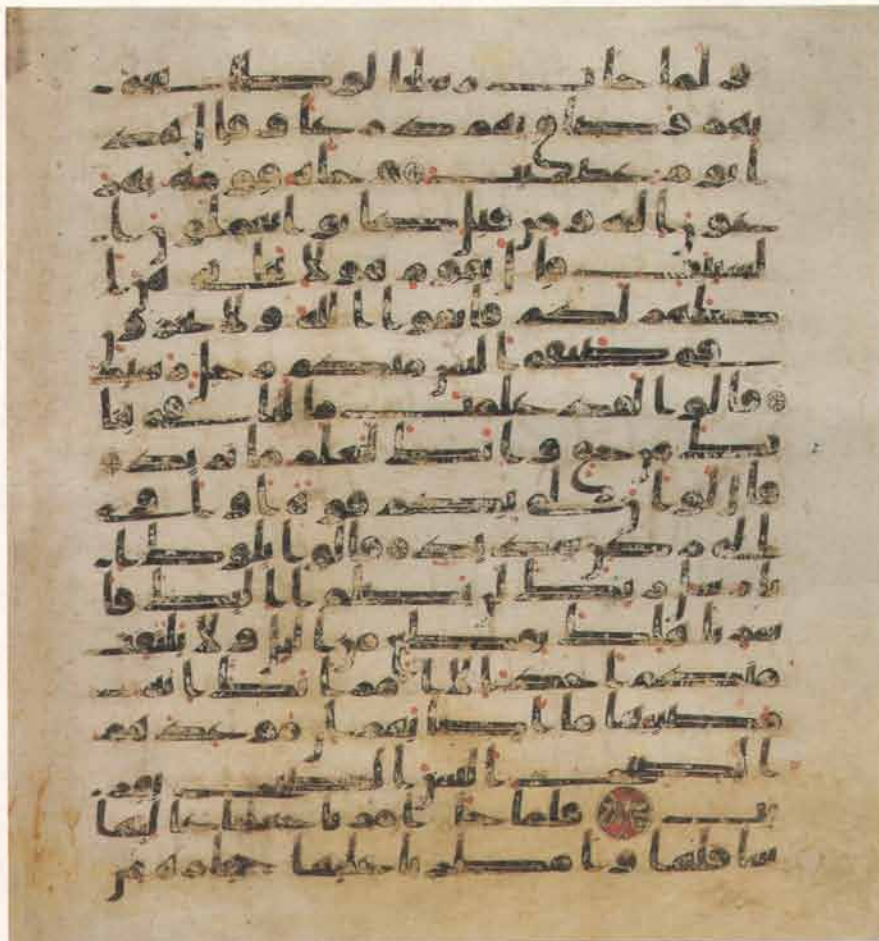 ولما جات رسلنا لوطا سى
بهم وضاق بهم ذرعا وقال هذ
ا يوم عصيب وجاه قومه يهر
عون اليه ومن قبل كانوا يعملون ا
لسيت قال يقوم هولا بناتى هن ا
طهر لكم فاتقوا الله ولا تخزو
ن فى ضيفى اليس منكم رجل رشيد
قالوا لقد علمت ما لنا فى بنا
تك من حق وانك لتعلم ما نريد
قال لو ان لى بكم قوة او اوى
الى ركن شديد قالوا يلوط ا
نا رسل ربك لن يصلوا اليك فا
سر باهلك بقطع من اليل ولا يلتفت
منكم احد الا امراتك انه
مصيبها ما اصابهم ان موعدهم
الصبح اليس الصبح بقر
يب فلما جا امرنا جعلنا عليها
سافلها وامطرنا عليها حجارة من